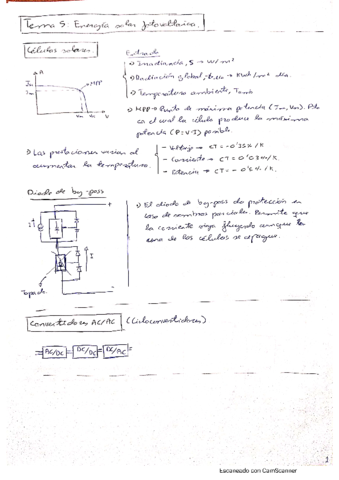 Tema 5: Energía solar fotovoltaica.
Células solares
Entrada
Irradiancia, S → W/m²
Radiación global, → kWh/m² día.
Temperatura ambiente, Tamb
MPP → Punto de máxima potencia (Im, Vm). Pto
en el cual la célula produce la máxima
potencia (P=V·I) posible
A
MPP
Vm
V
Las prestaciones varían al
aumentar la temperatura.
- Voltaje → CT = -0'35%/K
- Corriente → CT = 0'
- Potencia → CT = -0'
Diodo de by-pass
+
I
Tapada
-
El diodo de by-pass da protección en
caso de sombras parciales. Permite que
la corriente siga fluyendo aunque la
zona de las células se apague.
Convertidores AC/AC (Cicloconvertidores)
AC/DC DC/DC DC/AC
1
Escaneado con CamScanner